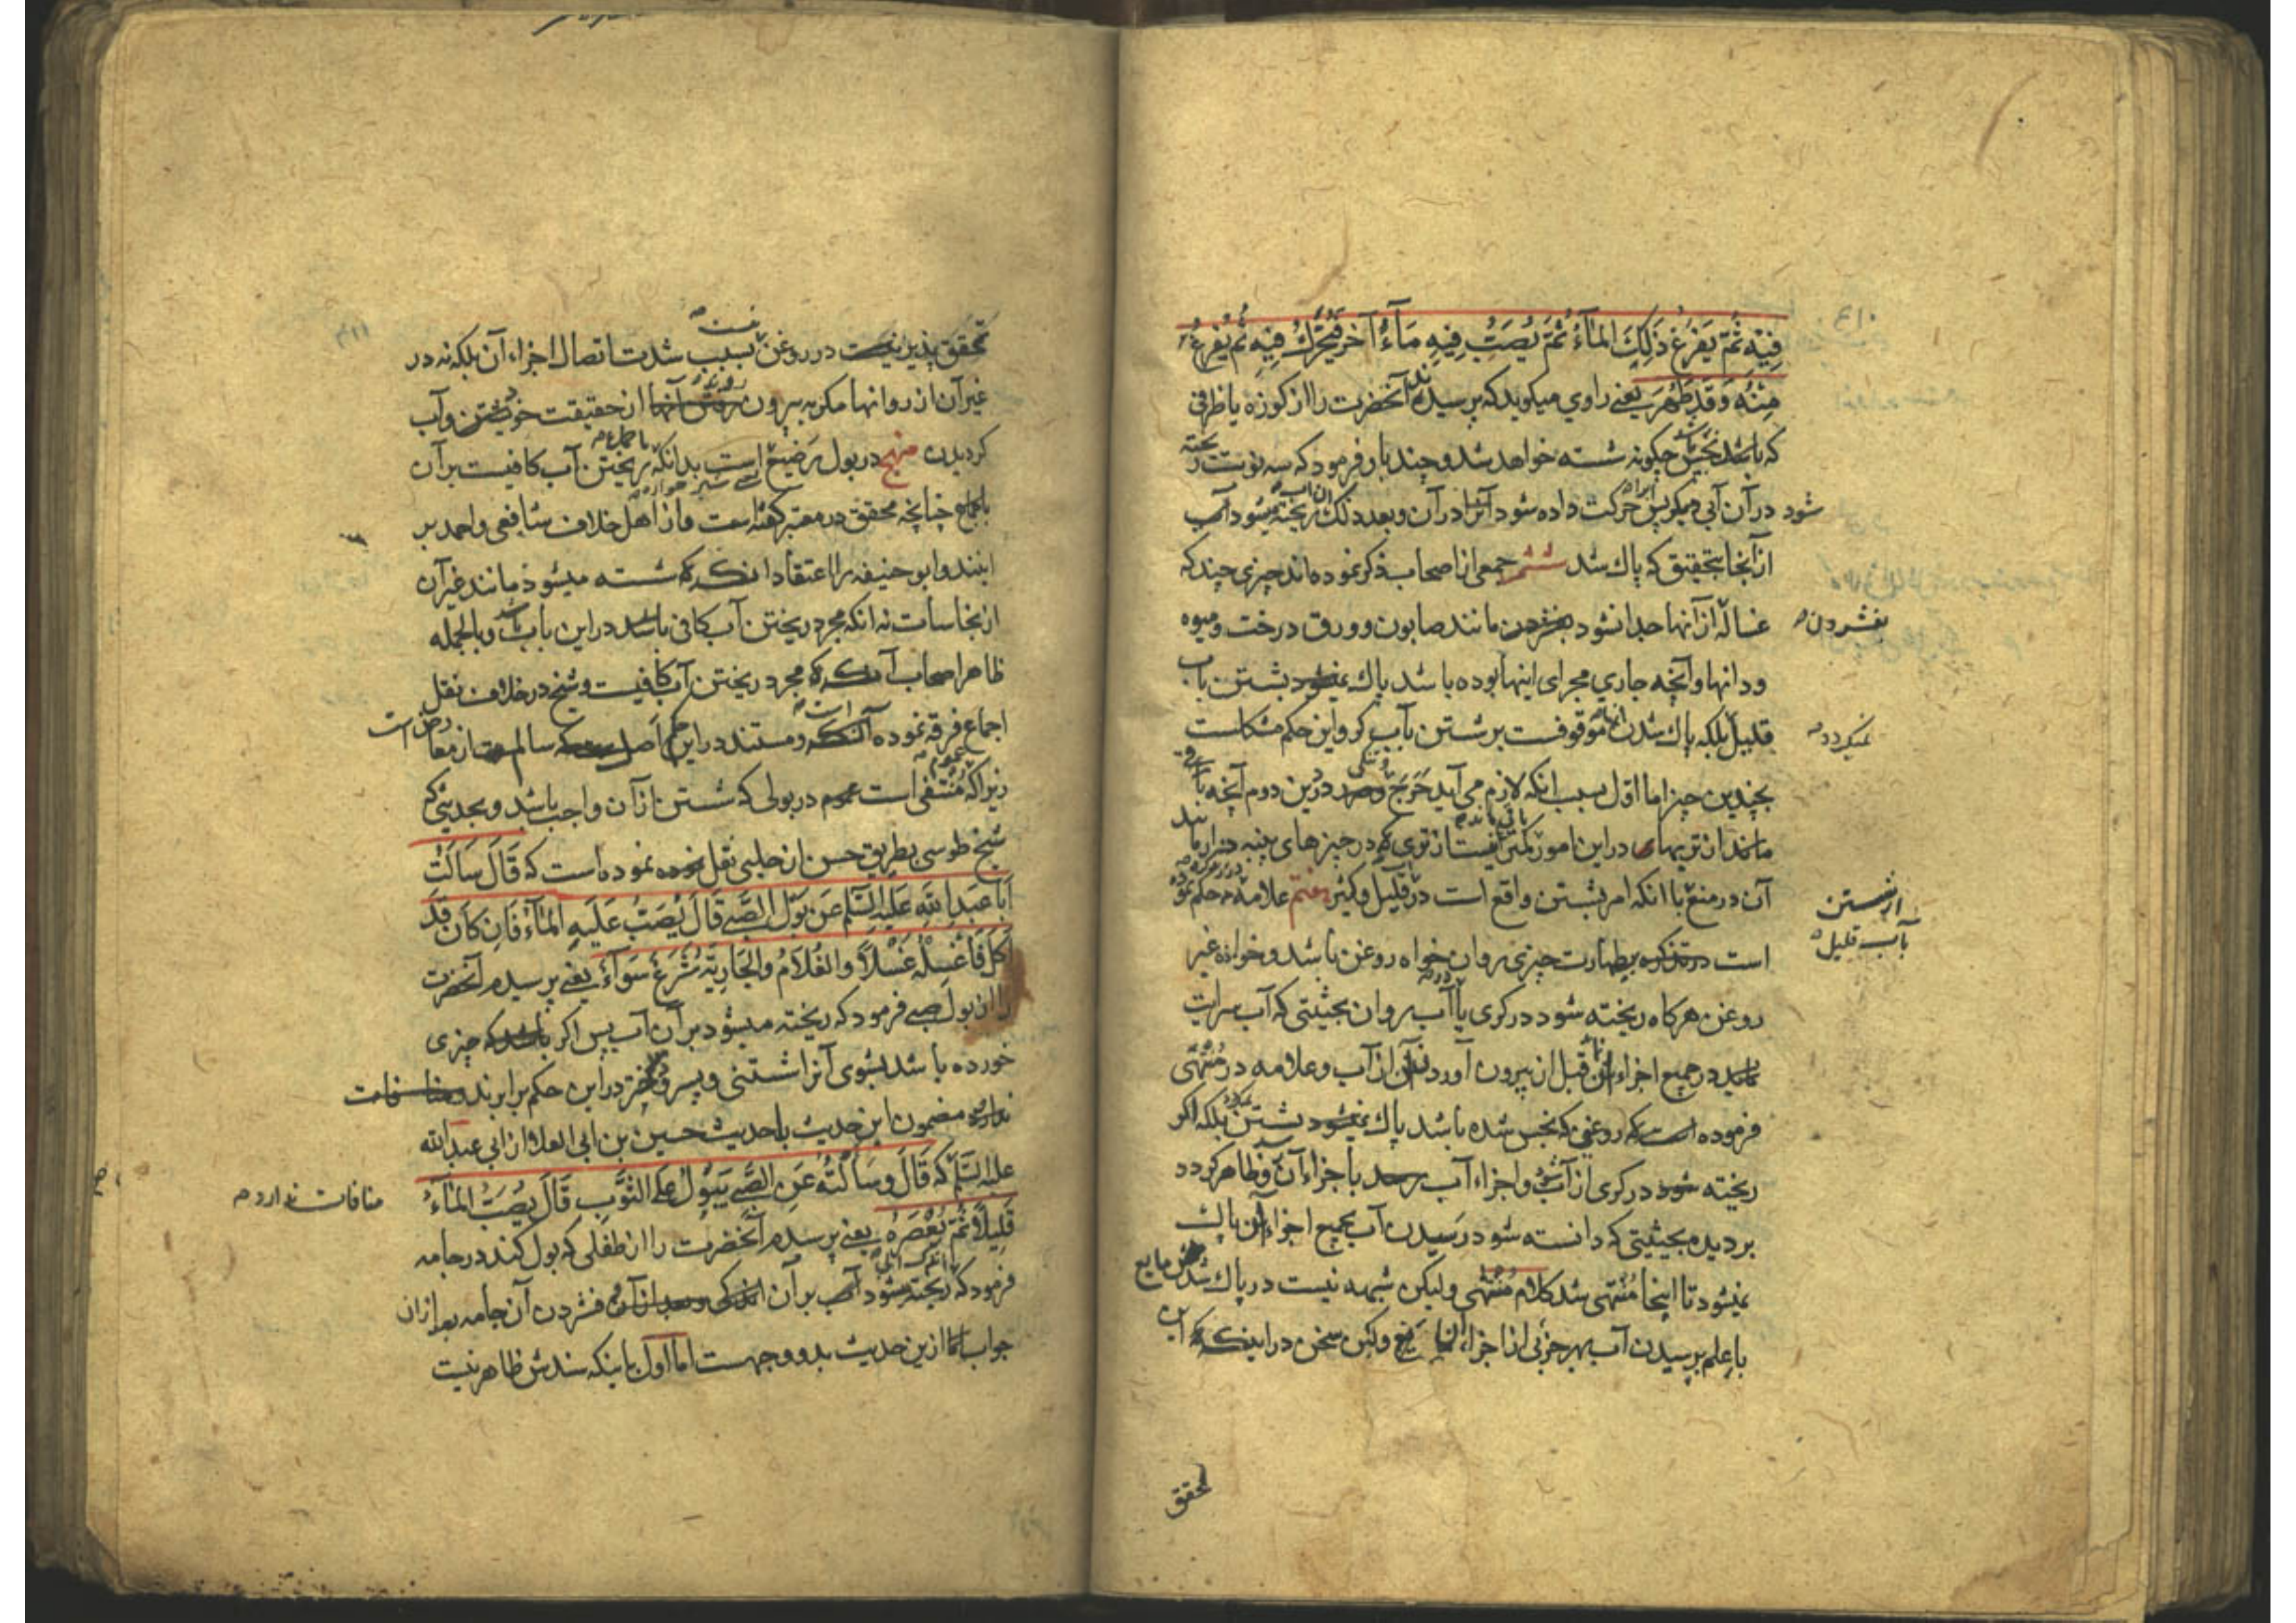 فِيْهِ ثُمَّ يَفْرُغُ ذَلِكَ المَآءُ ثُمَّ يُصَبُّ فِيهِ مَآءٌ آخَر فَيُحَرَّكُ فِيْهِ ثُمَّ يُفْرَغُ
مِنْهُ وَقَدْ طَهُرَ يعني راوي ميكويد كه پرسيدند آنحضرت را از كوزه يا ظرفى
كه باشد نجس چكونه شسته خواهد شد و چند بار فرمود كه سه نوبت ريخته
شود در آن آبى ديكر پس حركت داده شود آنرا در آن و بعد ذلك ريخته ميشود آب
از آنجا بتحقيق كه پاك شد ششم جمعى از اصحاب ذكر نموده اند چيزى چند كه
غساله از آنها جدا نشود بفشردن مانند صابون و ورق درخت و ميوه
بفشردن
ودانها وآنچه جاري مجراى اينها بوده باشد پاك نميشود بشستن بآب
قليل بلكه پاك شدن آنها موقوفست بر شستن بآب كر واين حكم مشكلست
نميكردد
بچندين چيز اما اول بسبب انكه لازم مى آيد حَرَج در ين دوم آنچه
ماند از تريهاى در اين امور كمتر است از ترى كه در چيزهاى پنبه دار
آن در منع با انكه امر بشستن واقع است در قليل وكثير هفتم علامه حكم نموده
از شستن
بآب قليل
است در تذكره بطهارت چيزى روان خواه روغن باشد وخواه غير
روغن هركاه ريخته شود در كرى يا آب روان بحيثيتى كه آب سرايت
نمايد در جميع اجزاء آن قبل از بيرون آوردن آن از آب وعلامه در مُنْتَهَى
فرموده است كه روغنى كه نجس شده باشد پاك نميشود بشستن بلكه اكر
ريخته شود در كرى از آب واجزاء آب رسد باجزاء آن وظاهر كردد
بر ديده بحيثيتى كه دانسته شود رسيدن آب بجميع اجزاء آن پاك
ميشود تا اينجا مُنْتَهى شد كلام مُنْتَهى وليكن شبهه نيست در پاك شدن مايع
باعلم برسيدن آب بهر جزئى از اجزاء آن مايع وليكن سخن در اينكه اين
تحقق
تحقق پذير نيست در روغن بسبب شدت اتصال اجزاء آن بلكه نه در
غير آن از روانها مكر به بيرون رفتن آنها از حقيقت خويشتن وآب
كرديدن منهج در بول رَضيع است بدانكه ريختن آب كافيست بر آن
باجماع چنانچه محقق در معتبر كفته است واز اهل خلاف شافعى واحمد بر
اينند وابو حنيفه را اعتقاد آنكه شسته ميشود مانند غير آن
از نجاسات نه انكه مجرد ريختن آب كافى باشد در اين باب وبالجمله
ظاهر اصحاب آنكه مجرد ريختن آب كافيست وشيخ در خلاف نقل
اجماع فرقه نموده است ومستند در اين حكم اصل است كه سالم است از معارض
زيراكه مُنْتَفى است عموم در بولى كه شستن از آن واجب باشد وبحديثى كه
شيخ طوسى بطريق حسن از حلبى نقل نموده است كه قَالَ سَاَلْتُ
اَبَا عَبْدِ اللهِ عَلَيْهِ السَّلام عَن بَوْلِ الصَّبي قَالَ يُصَبُّ عَلَيهِ المَآءُ فَاِن كَانَ قَدْ
اَكَلَ فَاغْسِلْهُ غَسْلاً وَالغُلامُ وَالجَارِيَةُ شَرَعٌ سَوَآءٌ يعنى پرسيدم آنحضرت
را از بول صبى فرمود كه ريخته ميشود بر آن آب پس اكر باشد كه چيزى
خورده باشد بشوى آنرا شستنى و پسر ودختر در اين حكم برابرند ومنافات
ندارد مضمون اين حديث باحديث حسين بن ابى العلا از ابى عبد الله
منافات ندارد
عليه السَّلم كه قَالَ وَسَاَلْتُهُ عَنِ الصَّبي يَبُوْلُ عَلى الثَّوْبِ قَالَ يُصَبُّ المَآءُ
قَلِيلاً ثُمَّ يُعْصَرُهُ يعنى پرسيدم آنحضرت را از طفلى كه بول كند در جامه
فرمود كه ريخته ميشود آب بر آن اندكى وبعد از آن فشردن آن جامه بعد از آن
جواب ما از ين حديث بدو وجهست اما اول باينكه سندش ظاهر نيست